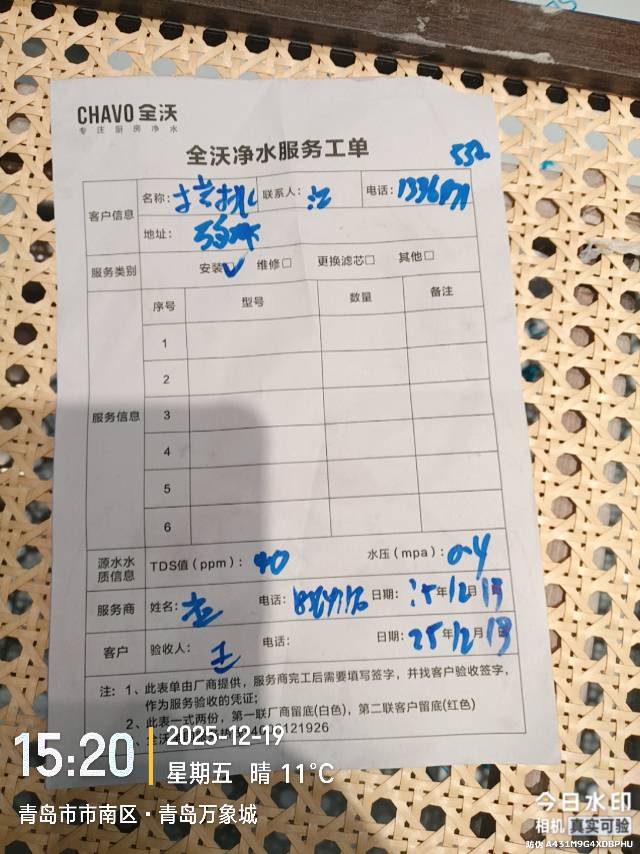 CHAVO 全沃
专注厨房净水
全沃净水服务工单
532
客户信息 名称: 联系人: 江 电话:
地址:
服务类别 安装☑ 维修□ 更换滤芯□ 其他□
服务信息 序号 型号 数量 备注
1
2
3
4
5
6
源水水质信息 TDS值(ppm): 90 水压(mpa): 0.4
服务商 姓名: 电话: 日期: 25年12月19日
客户 验收人: 王 电话: 日期: 25年12月19日
注: 1、此表单由厂商提供,服务商完工后需要填写签字,并找客户验收签字,
作为服务验收的凭证;
2、此表一式两份,第一联厂商留底(白色),第二联客户留底(红色)
121926
15:20 2025-12-19
星期五 晴 11℃
青岛市市南区·青岛万象城
今日水印
相机 真实可验
防伪 A431M9G4XDBPHU